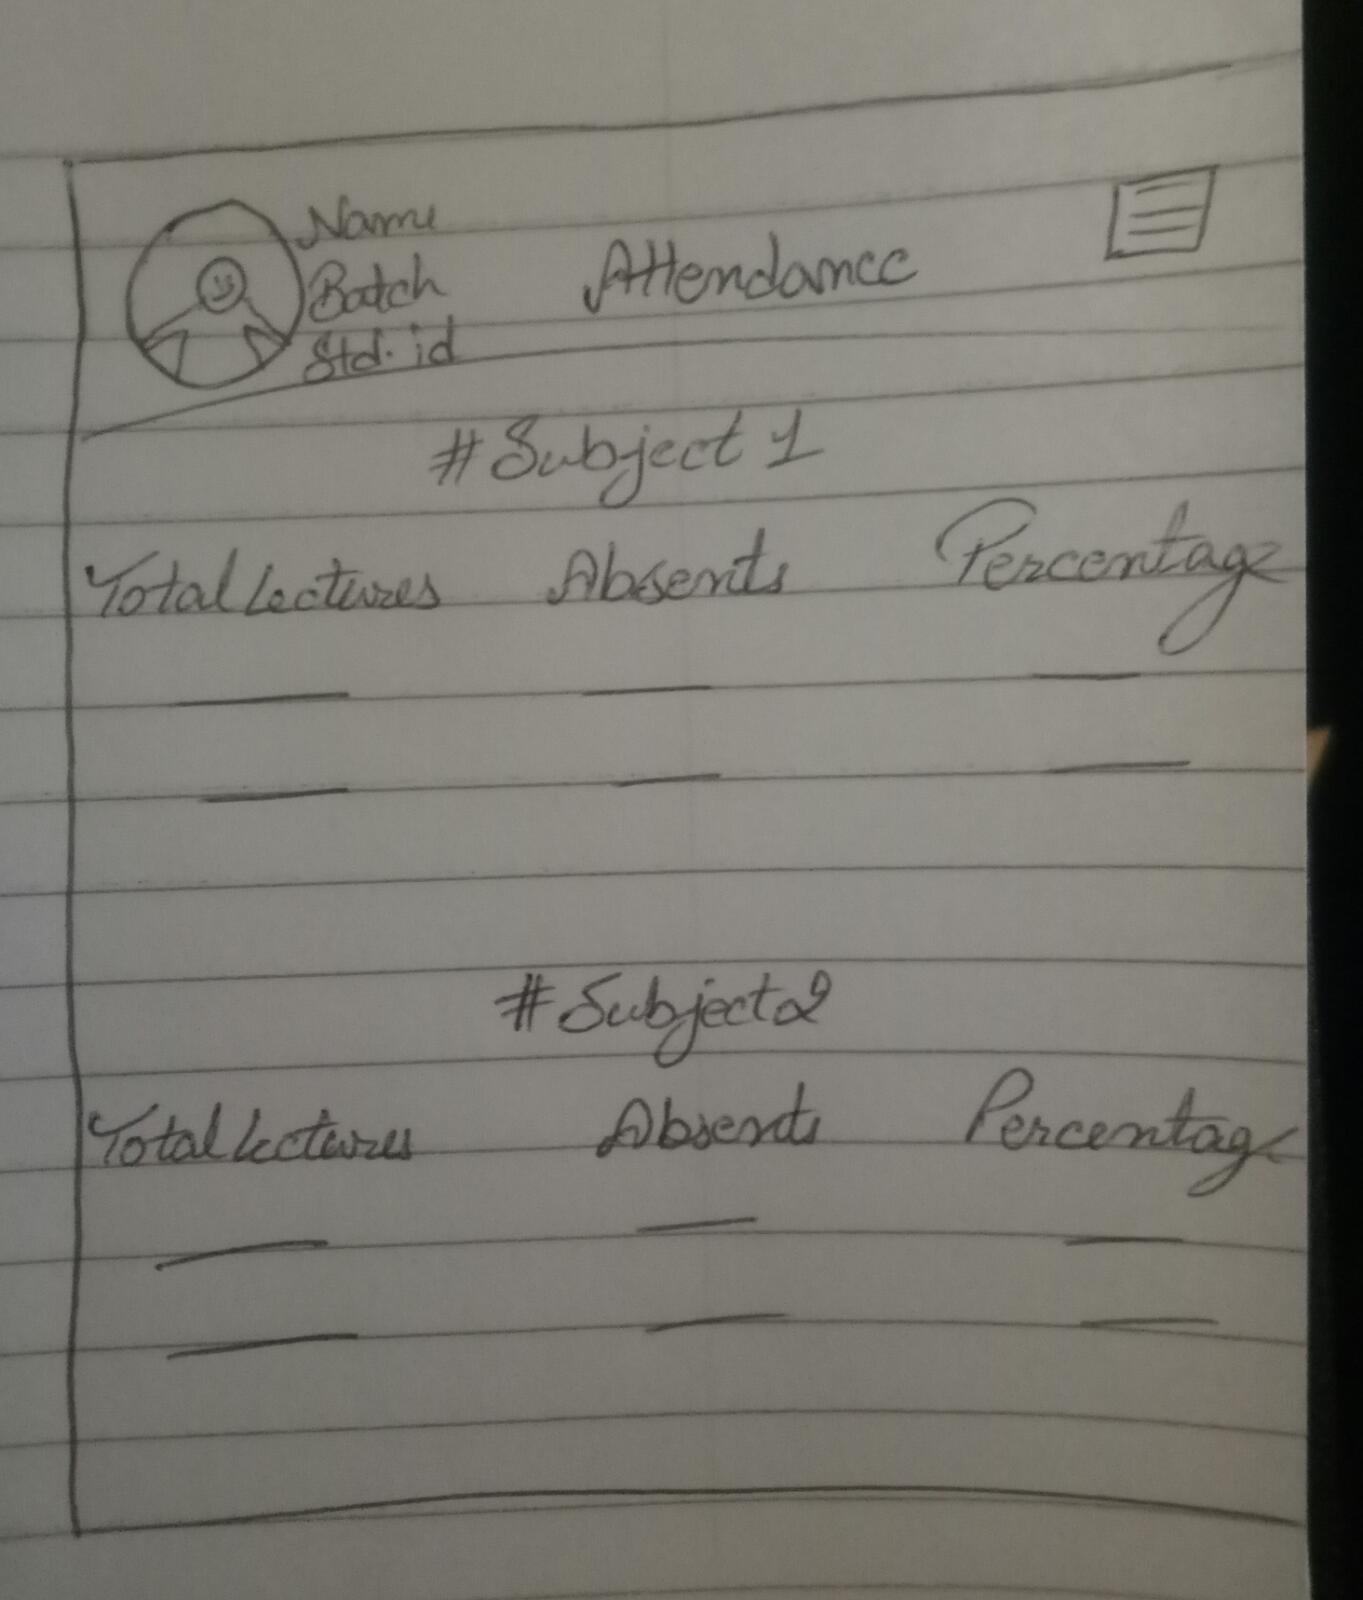 Name
Batch
Std. id
Attendance
#Subject 1
Total Lectures Absents Percentage
#Subject 2
Total Lectures Absents Percentage